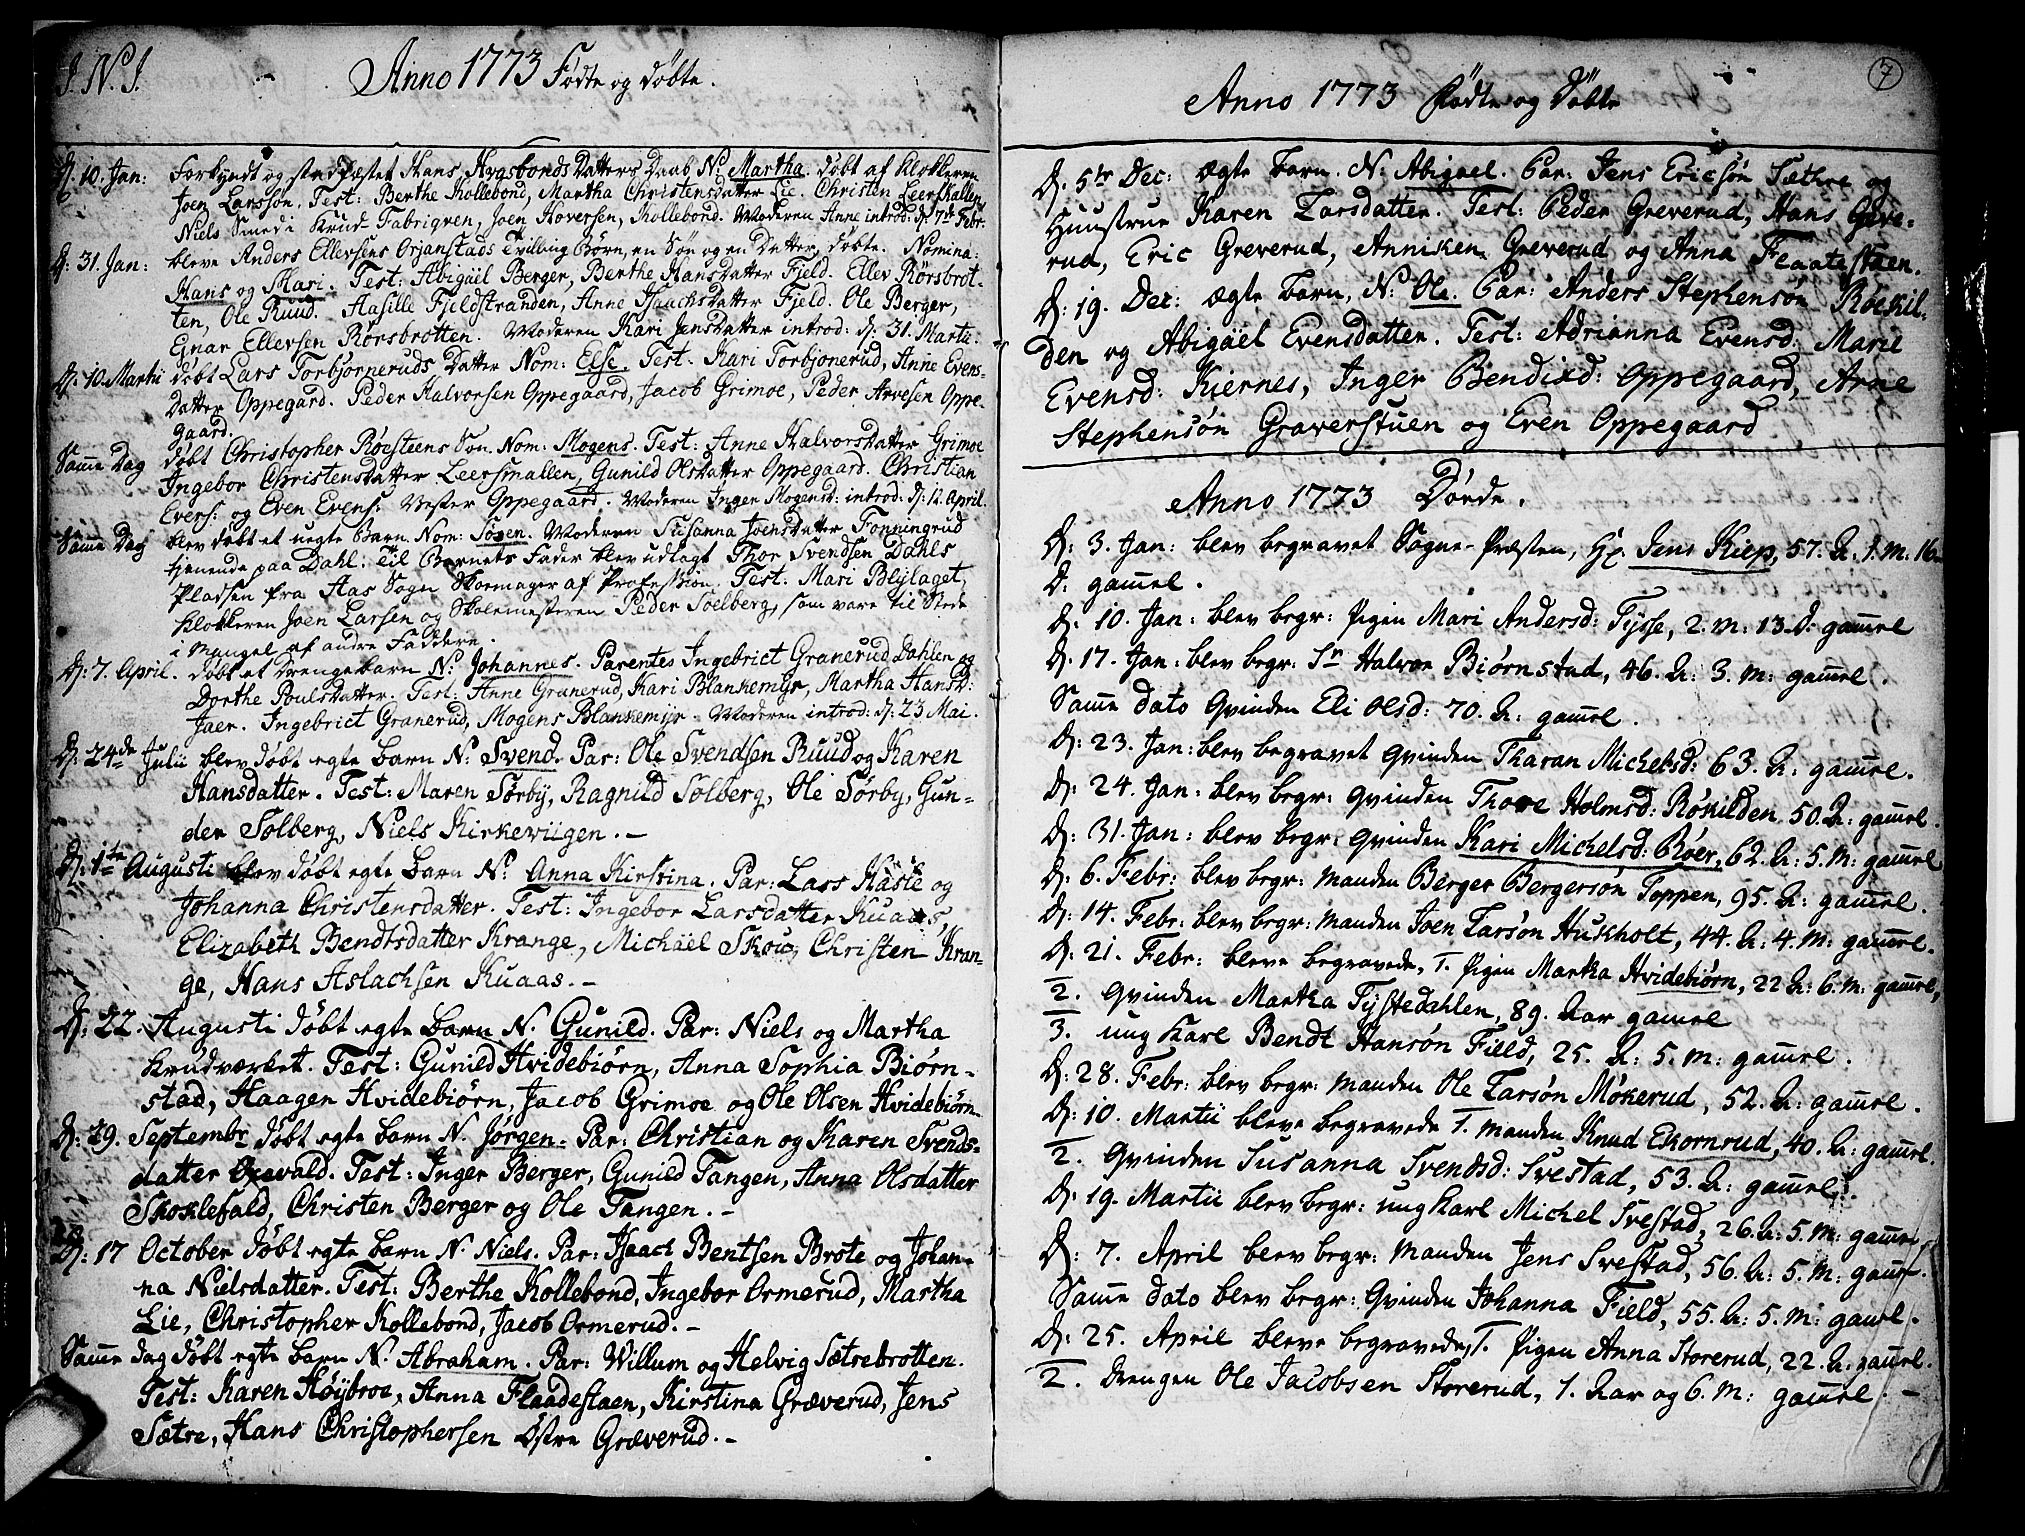 J. N. J.
Anno 1773 Födte og Döbte.
D: 10. Jan: Forkyndt og stadfæstet Hans Hvasbonds Datters Daab N. Martha. döbt af Klokkeren
Joen Larssön. Test: Berthe Kollebond, Martha Christensdatter Lie. Christen Leerskallen
Niels Smed i Krud-Fabriqven, Joen Hoversen, Kollebond. Moderen Anne introd: d: 7de Febr.
D: 31. Jan: bleve Anders Ellevsens Orjanstads Tvilling Börn, en Sön og en Datter, döbte. Nomina:
Hans og Mari. Test: Abigäel Berger, Berthe Hansdatter Fjeld. Ellev Rorsbrot-
ten, Ole Ruud. Aasille Fjeldstranden, Anne Isaachsdatter Fjeld. Ole Berger,
Gunar Ellevsen Rorsbrotten. Moderen Kari Jensdatter introd: d: 31. Martii.
D: 10. Martii döbt Lars Torbjörneruds Datter Nom: Else. Test. Kari Torbjonerud, Anne Evens-
Datter Oppegard. Peder Halvorsen Oppegaard, Jacob Grimoe, Peder Arvesen Oppe-
gaard.
Samme Dag döbt Christopher Röesteens Sön. Nom: Mogens. Test: Anne Halvorsdatter Grimoe
Ingebor Christensdatter Leersmallen, Gunild Olsdatter Oppegaard. Christian
Evers: og Even Evens: Vester Oppegaard. Moderen Inger Mogensd: introd: d: 12. April.
Samme Dag blev döbt et uegte Barn. Nom: Sören. Moderen Susanna Joensdatter Fonningrud
tjenende paa Dahl. Til Barnets Fader blev udlagt Thor Svendsen Dahls
Pladsen fra Aas Sogn Skomager af Profession. Test: Mari Blylaget,
Klokkeren Joen Larsen og Skolemesteren Peder Soelberg, som vare til Stede
i Mangel af andre Faddere.
D: 7. April. döbt et Drengebarn N. Johannes. Parentes Ingebrict Granerud Dahlen og
Dorthe Poulsdatter. Test: Anne Granerud, Kari Blankemyr, Martha Hansd:
Jaer. Ingebrict Granerud, Mogens Blankemyr. Moderen introd: d: 23 Mai.
D: 24de Julii blev döbt egte Barn N: Svend. Par: Ole Svendsen Ruud og Karen
Hansdatter. Test: Maren Sörby, Ragnild Solberg, Ole Sörby, Gun-
der Solberg, Niels Kirkeviigen. -
D: 1te Augusti blev döbt egte Barn N: Anna Kirstina. Par: Lars Haslé og
Johanna Christensdatter. Test: Ingebor Larsdatter Kuaas,
Elizabeth Bendtsdatter Krange, Michäel Skou, Christen Kran-
ge, Hans Aslachsen Kuaas. -
D: 22. Augusti döbt egte Barn N. Gunild. Par: Niels og Martha
Krudværket. Test: Gunild Hvidebiörn, Anna Sophia Biörn-
stad, Haagen Hvidebiörn, Jacob Grimoe og Ole Olsen Hvidebiörn.
D: 29. Septembr döbt egte Barn N. Jörgen. Par: Christian og Karen Svends-
datter Oxevald. Test: Inger Berger, Gunild Tangen, Anna Olsdatter
Skoklefald, Christen Berger og Ole Tangen. -
D: 17 October döbt egte Barn N. Niels. Par: Isaach Bentsen Brote og Johan-
na Nielsdatter. Test: Berthe Kollebond, Ingebor Ormerud, Martha
Lie, Christopher Kollebond, Jacob Ormerud. -
Samme dag döbt egte Barn N. Abraham. Par: Willum og Helvig Sætrebrotten.
Test: Karen Höybroe, Anna Flaadestaen, Kirstina Græverud, Jens
Sætre, Hans Christophersen Östre Græverud. -
7
Anno 1773 Födte og Döbte
D: 5te Dec: Ægte Barn. N: Abigael. Par: Jens Ericsön Sæthre og
Huustrue Karen Larsdatter. Test: Peder Greverud, Hans Greve-
rud, Eric Greverud, Anniken Greverud og Anna Flaatestaen.
D: 19. Dec: Ægte Barn, N: Ole. Par: Anders Stephensön Röeskil-
den og Abigäel Evensdatter. Test: Adrianna Evensd: Marie
Evensd: Kiernes, Inger Bendixd: Oppegaard, Arne
Stephensön Graverstuen og Even Oppegaard
Anno 1773 Döede.
D: 3. Jan: blev begravet Sogne-Præsten, Hr. Jens Kiep, 57. A: 1. M: 16.
D. gamel.
D: 10. Jan: blev begr: Pigen Mari Andersd: Tysse, 2. M: 13. D. gamel
D: 17. Jan: blev begr: Sr Halvor Biörnstad, 46. A: 3. M: gamel.
Samme dato Qvinden Eli Olsd: 70. A: gamel.
D: 23. Jan: blev begravet Qvinden Tharan Michelsd: 63. A: gamel.
D: 24. Jan: blev begr: Qvinden Thore Holmsd: Rökilden, 50. A: gamel.
D: 31. Jan: blev begr: Qvinden Kari Michelsd: Röer, 62. A: 5. M: gamel
D: 6. Febr: blev begr: Manden Berger Bergersön Toppen, 95. A: gamel.
D: 14. Febr: blev begr: Manden Joen Larsön Huskholt, 44. A: 4. M: gamel.
D: 21. Febr: bleve begravede, 1. Pigen Martha Hvidebiörn, 22 A: 6. M: gamel,
2. Qvinden Martha Tystedahlen, 89. Aar gamel
3. ung Karl Bendt Hansön Field, 25. A: 5. M: gamel.
D: 28. Febr: blev begr: Manden Ole Larsön Mökerud, 52. A: gamel.
D: 10. Martii bleve begravede 1. Manden Knud Ekornrud, 40. A: gamel.
2. Qvinden Susanna Svendsd: Svestad, 53. A: gamel.
D: 19. Martii blev begr: ung Karl Michel Svestad, 26. A: 5. M: gamel
D: 7. April blev begr: Manden Jens Svestad, 56. A: 5. M: gamel.
Samme dato blev begr: Qvinden Johanna Field, 55. A: 5. M: gamel.
D: 25. April bleve begravede, 1. Pigen Anna Storerud, 22. A. gamel.
2. Drengen Ole Jacobsen Storerud, 1. Aar og 6. M: gamel. -